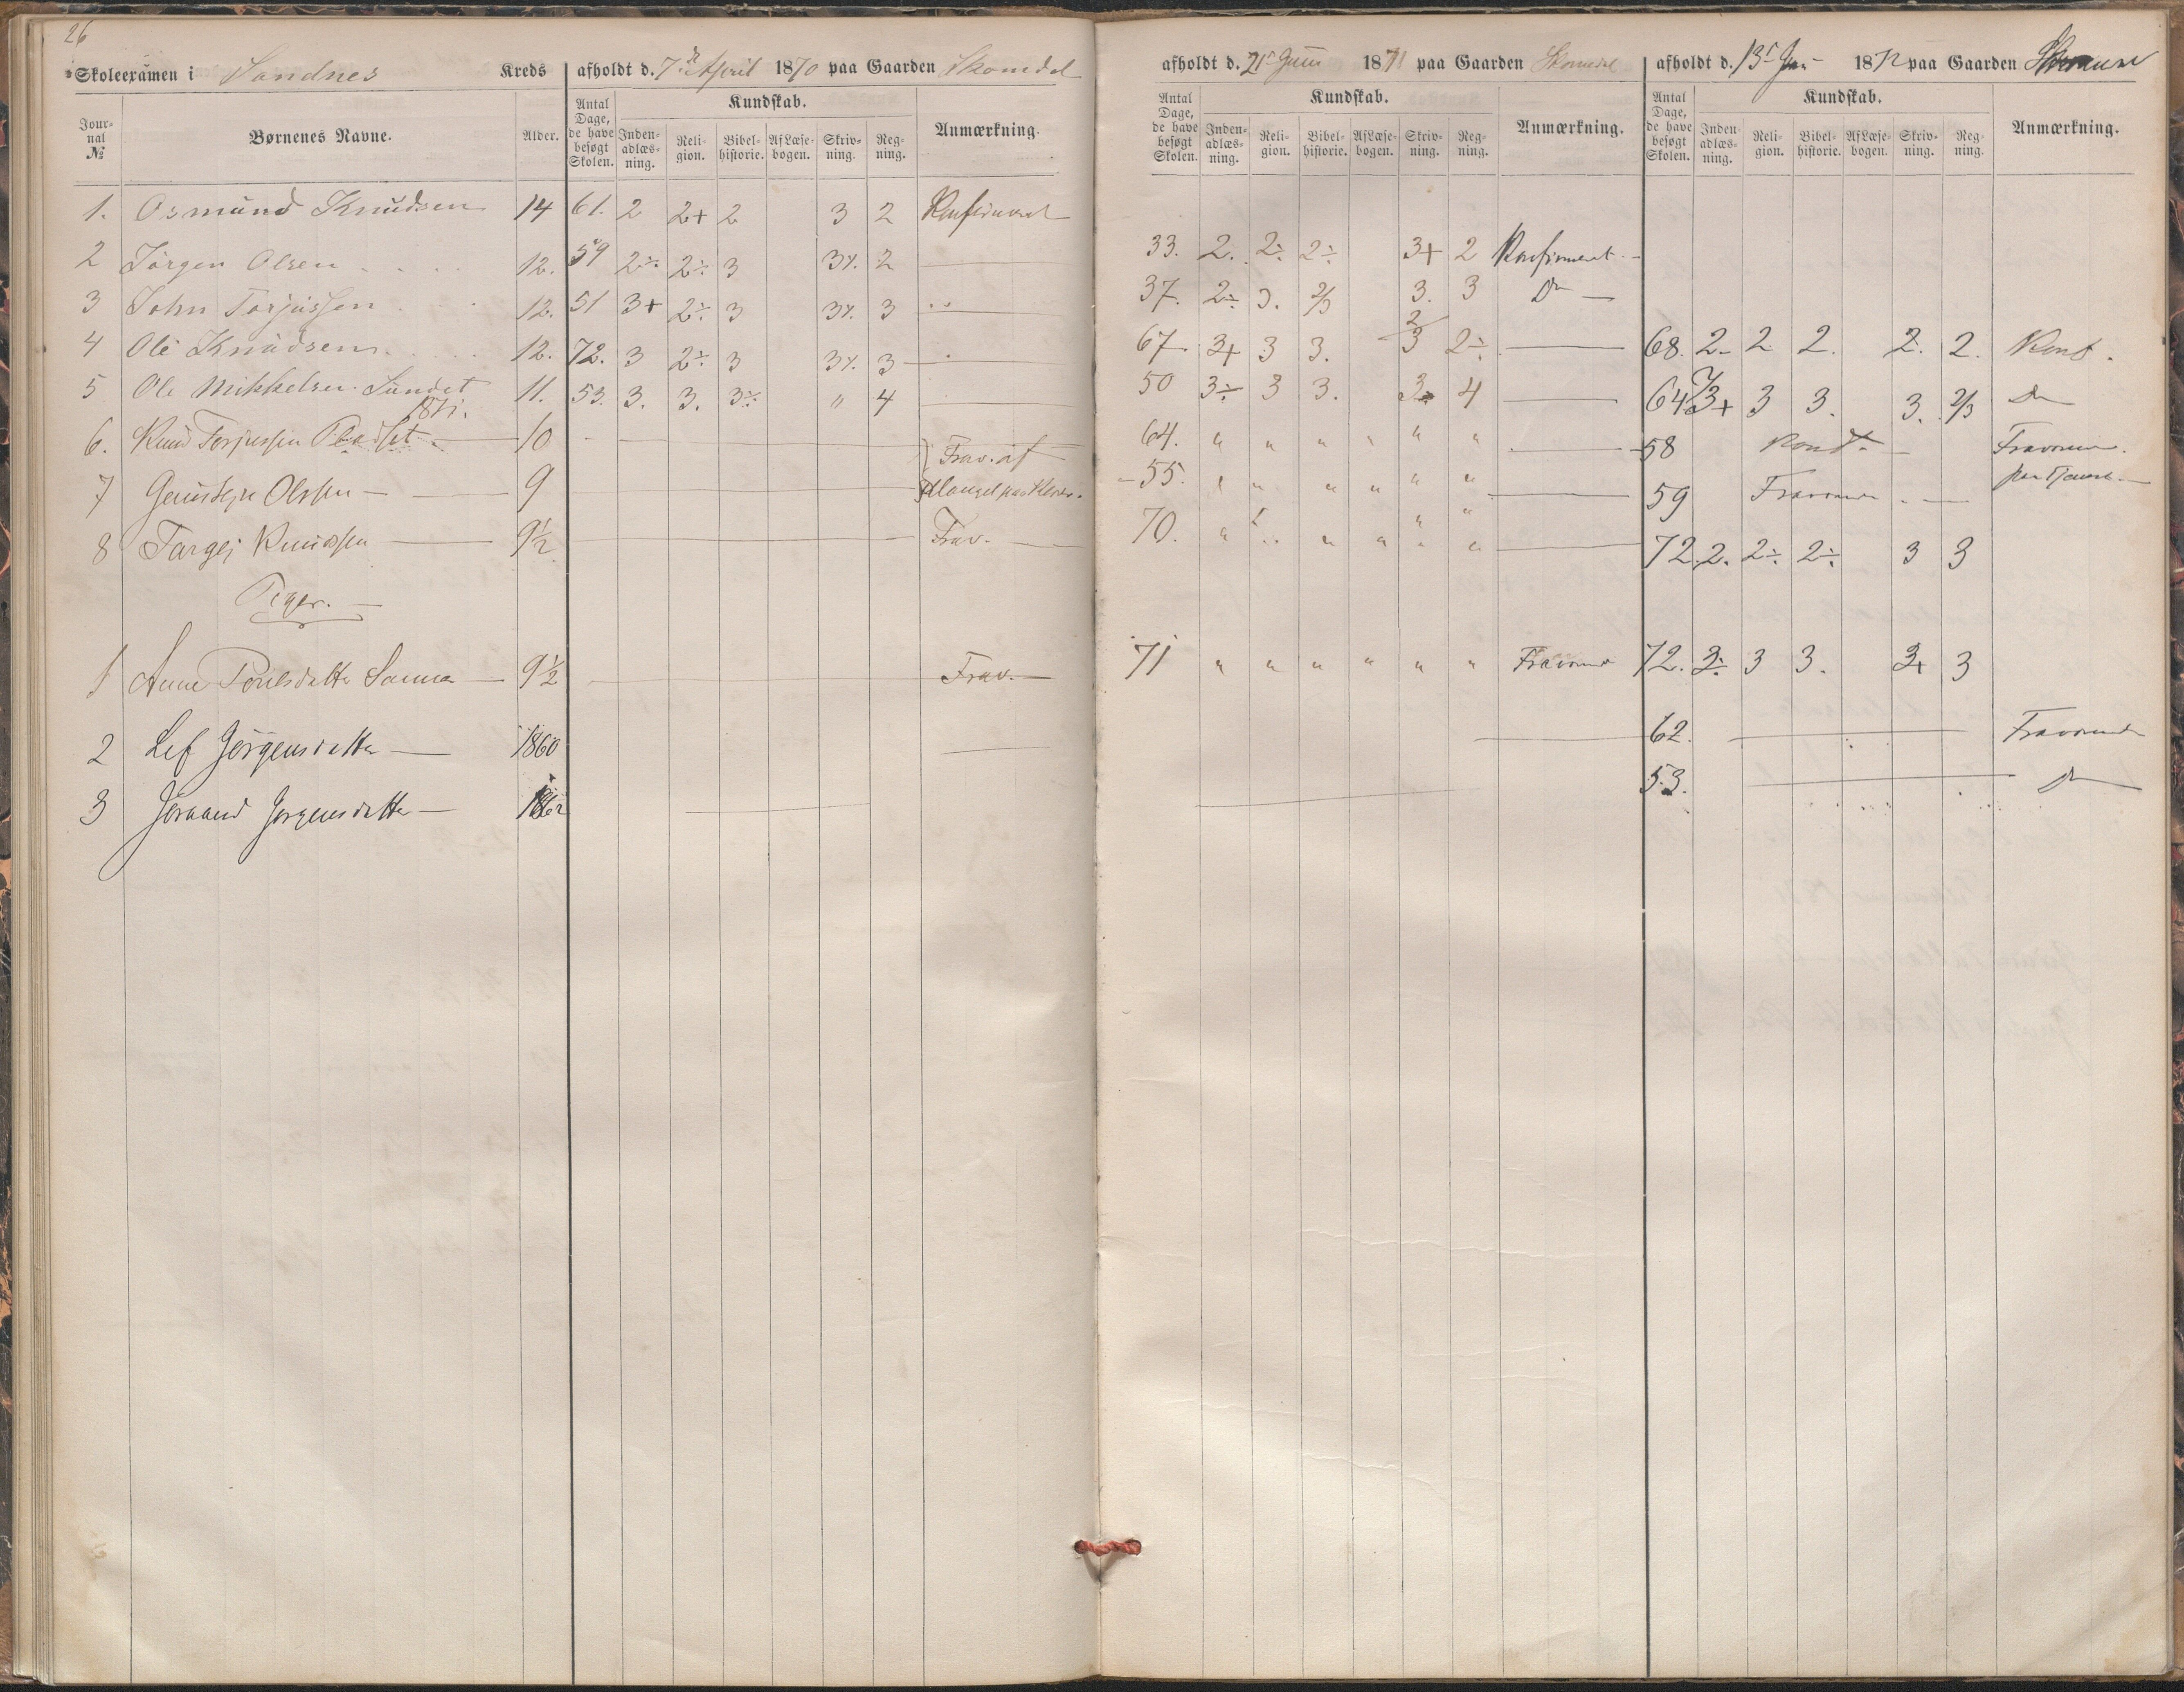 26
Skoleexamen i Sandnes Kreds afholdt d. 7de April 1870 paa Gaarden Skomdal
Journal № Børnenes Navne. Alder. Antal Dage, de have besøgt Skolen. Kundskab. Indenadlæsning. Religion. Bibelhistorie. Af Læsebogen. Skrivning. Regning. Anmærkning.
1. Osmund Knudsen 14 61. 2 2+ 2 3 2 Konfirmeret
2 Jörgen Olsen 12. 59 2÷ 2÷ 3 3÷ 2
3 John Torjussen 12. 51 3+ 2÷ 3 3÷ 3
4 Ole Knudsen 12. 72. 3 2÷ 3 3÷ 3
5 Ole Mikkelsen Sundet 11. 53. 3. 3. 3÷ " 4
1871.
6. Knud Torjussen 10 Frav. af
7 Olssen 9 Mangel paa Klæder.
8 Targej Knudssen 9½ Frav.
Piger.
1 Anne 9½ Frav.
2 Lef Jörgensdatter 1860
3 Joraand Jorgensdatter 1862
afholdt d. 21de Juni 1871 paa Gaarden Skomdal
Antal Dage, de have besøgt Skolen. Kundskab. Indenadlæsning. Religion. Bibelhistorie. Af Læsebogen. Skrivning. Regning. Anmærkning.
33. 2. 2÷ 2÷ 3+ 2 Konfirmeret
37. 2÷ 3. 2/3 3. 3 Do
67 3+ 3 3. 2/3 2÷
50 3÷ 3 3. 3 4
64. " " " " " "
55. " " " " "
70. " " " " "
71 " " " " " " Fravær
afholdt d. 13de Jan 1872 paa Gaarden
Antal Dage, de have besøgt Skolen. Kundskab. Indenadlæsning. Religion. Bibelhistorie. Af Læsebogen. Skrivning. Regning. Anmærkning.
68. 2 2 2. 2. 2. Konf.
64 3+ 3 3. 3. 2/3 Do
58 Konf.
59
72. 2. 2÷ 2÷ 3 3
72. 3÷ 3 3. 3+ 3
62.
53. Do